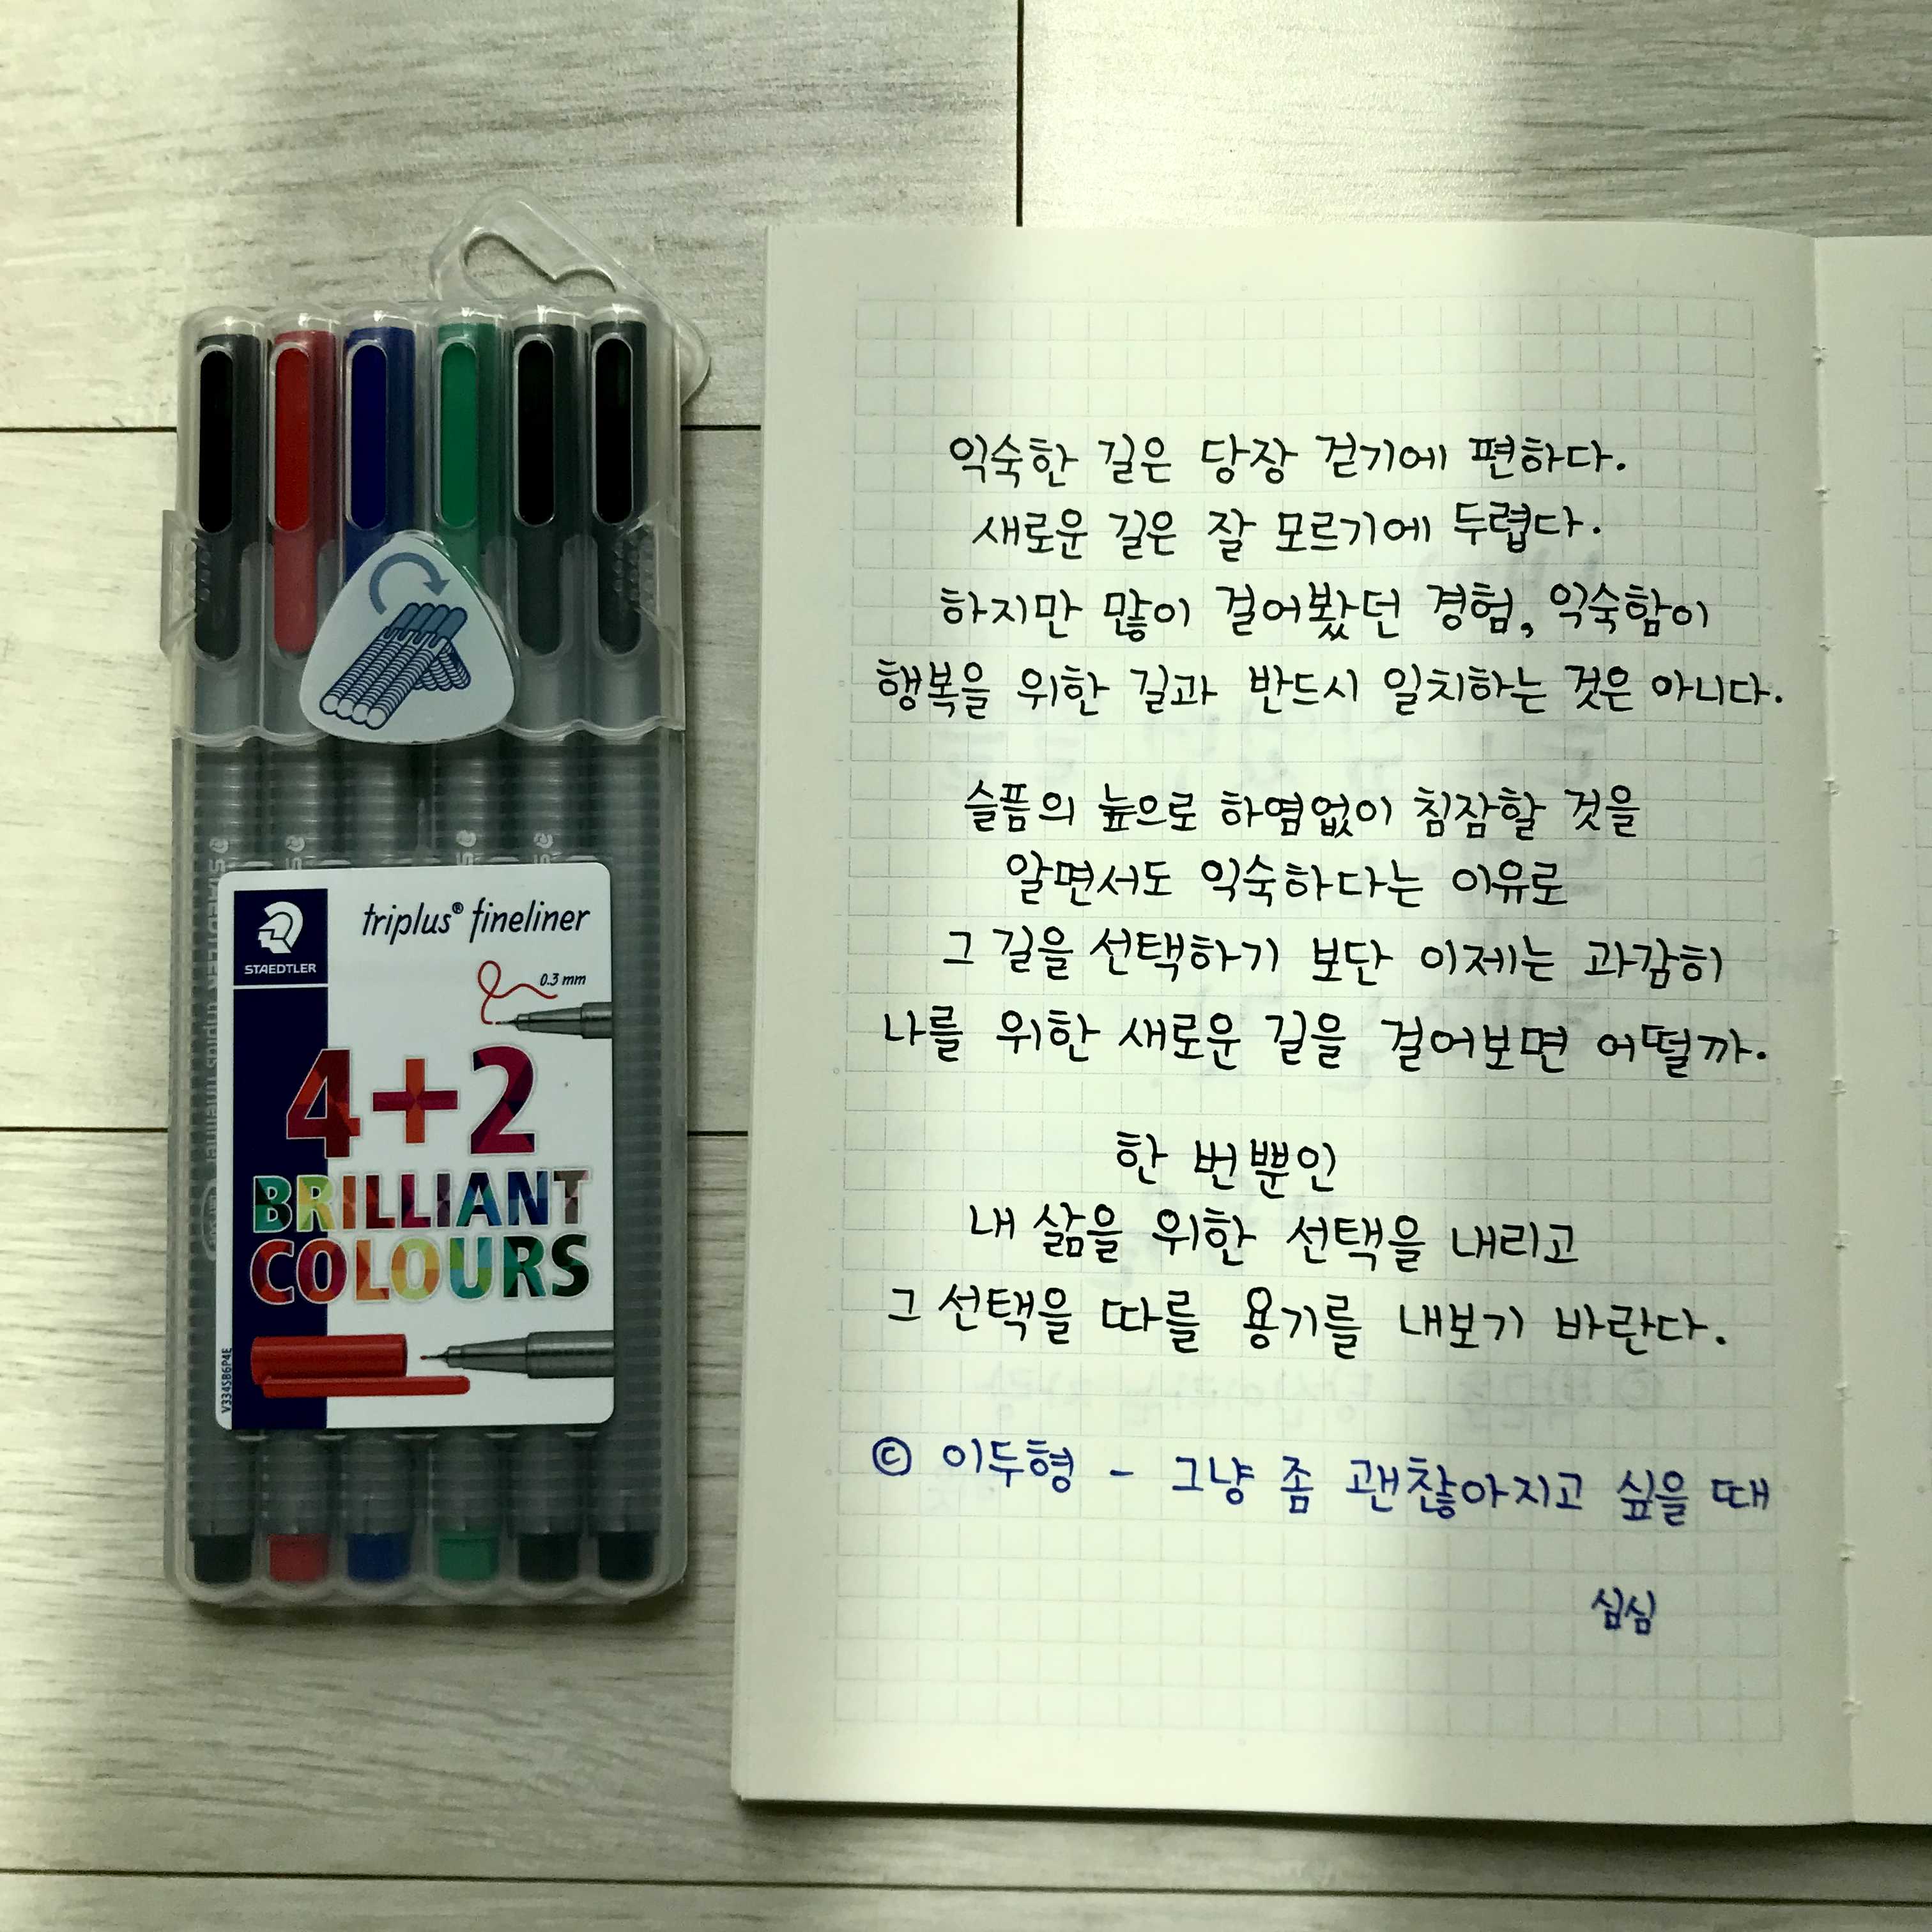 STAEDTLER
triplus® fineliner
0.3 mm
4+2
BRILLIANT
COLOURS
V334SB6P4E
익숙한 길은 당장 걷기에 편하다.
새로운 길은 잘 모르기에 두렵다.
하지만 많이 걸어봤던 경험, 익숙함이
행복을 위한 길과 반드시 일치하는 것은 아니다.
슬픔의 늪으로 하염없이 침잠할 것을
알면서도 익숙하다는 이유로
그 길을 선택하기 보단 이제는 과감히
나를 위한 새로운 길을 걸어보면 어떨까.
한 번뿐인
내 삶을 위한 선택을 내리고
그 선택을 따를 용기를 내보기 바란다.
© 이두형 - 그냥 좀 괜찮아지고 싶을 때
심심